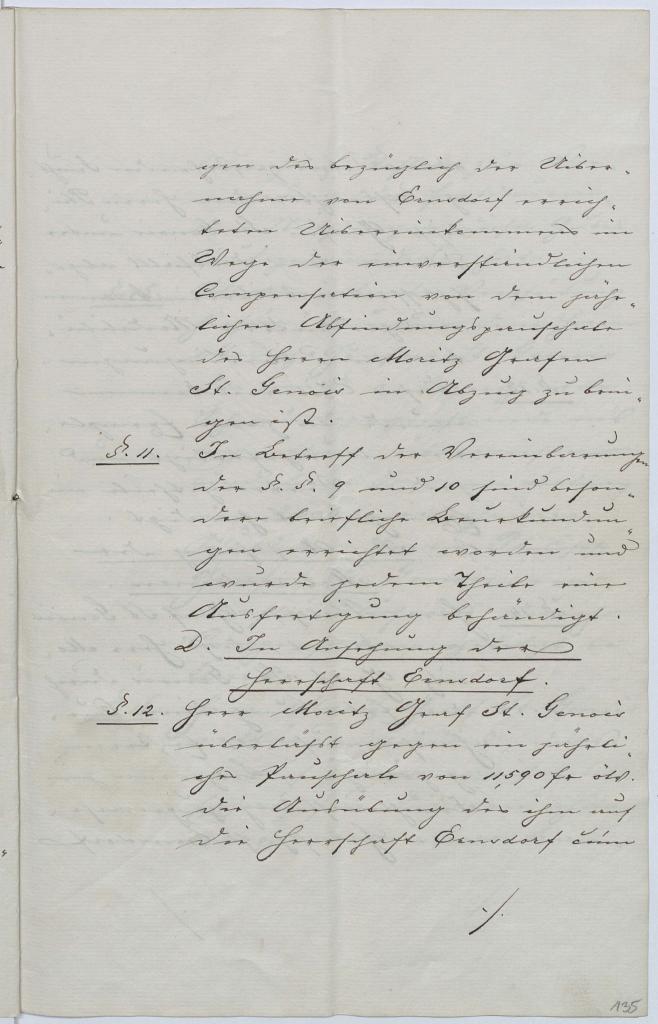 gen des bezüglich der Ueber-
nahme von Ernsdorf errich-
teten Uebereinkommens im
Wege der einverständlichen
Compensation von dem jähr-
lichen Abfindungspauschale
des Herrn Moritz Grafen
St. Genois in Abzug zu brin-
gen ist.
§. 11. In Betreff der Vereinbarungen
der §. §. 9 und 10 sind beson-
dere briefliche Beurkundun-
gen errichtet worden und
wurde jedem Theile eine
Ausfertigung behändigt.
D. In Ansehung der
Herrschaft Ernsdorf.
§. 12. Herr Moritz Graf St. Genois
überläßt gegen ein jährli-
ches Pauschale von 11,590 fr ötw.
die Ausübung des ihm auf
die Herrschaft Ernsdorf cum
./.
135